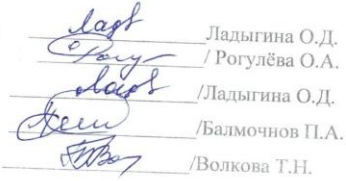 Ладыгина О.Д.
/ Рогулёва О.А.
/Ладыгина О.Д.
/Балмочнов П.А.
/Волкова Т.Н.